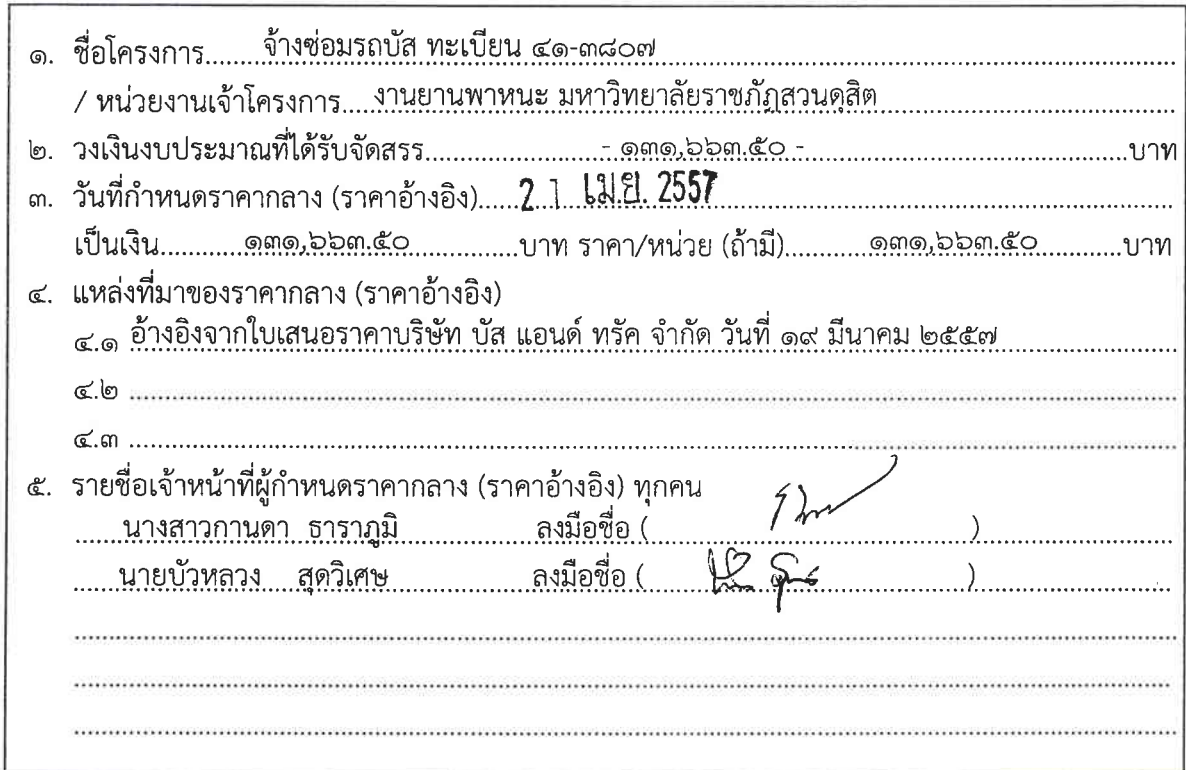 ๑. ชื่อโครงการ.......จ้างซ่อมรถบัส ทะเบียน ๔๑-๓๘๐๗
/ หน่วยงานเจ้าโครงการ....งานยานพาหนะ มหาวิทยาลัยราชภัฏสวนดุสิต
๒. วงเงินงบประมาณที่ได้รับจัดสรร....................- ๑๓๑,๖๖๓.๕๐ -....................บาท
๓. วันที่กำหนดราคากลาง (ราคาอ้างอิง).....21 เม.ย. 2557
เป็นเงิน..........๑๓๑,๖๖๓.๕๐.............บาท ราคา/หน่วย (ถ้ามี)..........๑๓๑,๖๖๓.๕๐..........บาท
๔. แหล่งที่มาของราคากลาง (ราคาอ้างอิง)
๔.๑ อ้างอิงจากใบเสนอราคาบริษัท บัส แอนด์ ทรัค จำกัด วันที่ ๑๙ มีนาคม ๒๕๕๗
๔.๒
๔.๓
๕. รายชื่อเจ้าหน้าที่ผู้กำหนดราคากลาง (ราคาอ้างอิง) ทุกคน
นางสาวกานดา ธาราภูมิ ลงมือชื่อ ( )
นายบัวหลวง สุดวิเศษ ลงมือชื่อ ( )